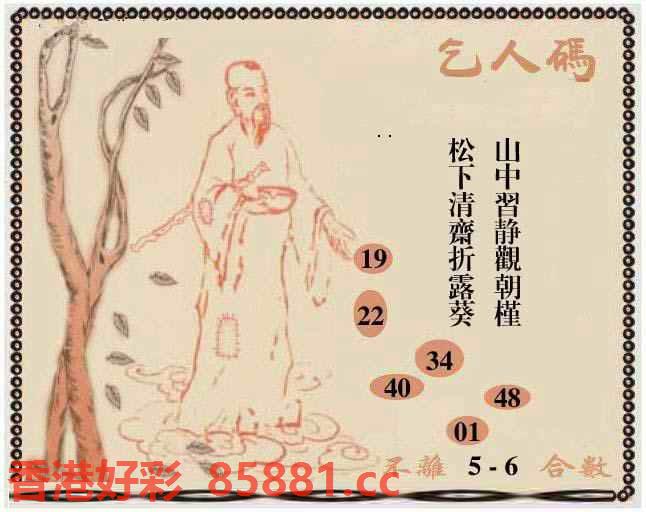 乞人碼
山中習静觀朝槿
松下清齋折露葵
19
22
34
40
48
01
不離 5-6 合數
香港好彩 85881.cc